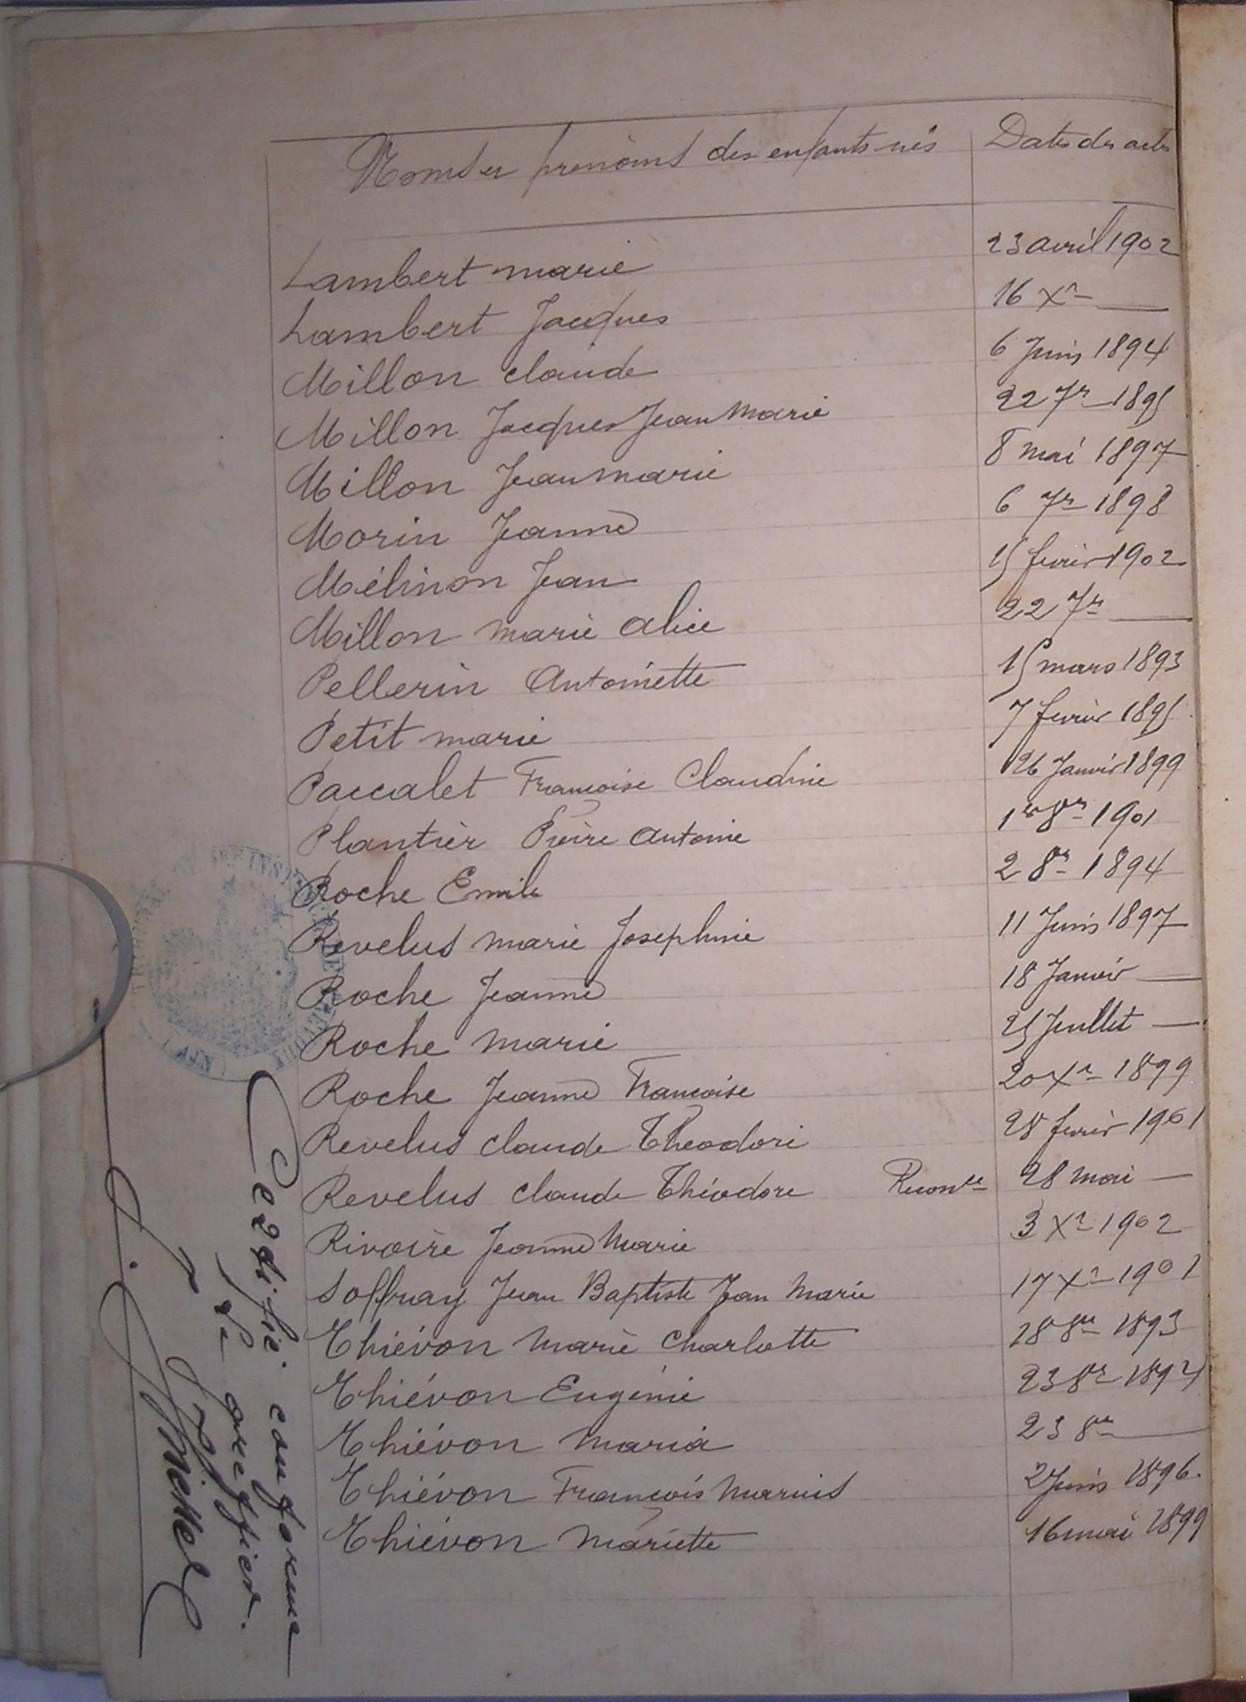 Noms et prénoms des enfants nés Dates des actes
Lambert marie 23 avril 1902
Lambert Jacques 16 Xr —
Millon claude 6 Juin 1894
Millon Jacques Jean Marie 22 7r 1895
Millon Jean marie 8 mai 1897
Morin Jeanne 6 7r 1898
Mélinon Jean 15 fevrier 1902
Millon marie alice 22 7r —
Pellerin Antoinette 15 mars 1893
Petit marie 7 fevrier 1895
Paccalet Françoise Claudine 26 Janvier 1899
Plantier Pierre antoine 1er 8r 1901
Roche Emile 2 8r 1894
Revelus marie Josephine 11 Juin 1897
Roche Jeanne 18 Janvier —
Roche marie 25 Juillet —
Roche Jeanne Françoise 20 Xr 1899
Revelus claude Theodore 28 fevrier 1901
Revelus claude Théodore Reconce 28 mai —
Rivoire Jeanne Marie 3 Xr 1902
Soffray Jean Baptiste Jean Marie 17 Xr 1901
Thiévon Marie Charlotte 18 8re 1893
Thiévon Eugénie 23 8re 1894
Thiévon Maria 23 8re —
Thiévon François Marius 2 Juin 1896.
Thiévon Mariette 16 mai 1899
Certifié conforme
Le greffier.